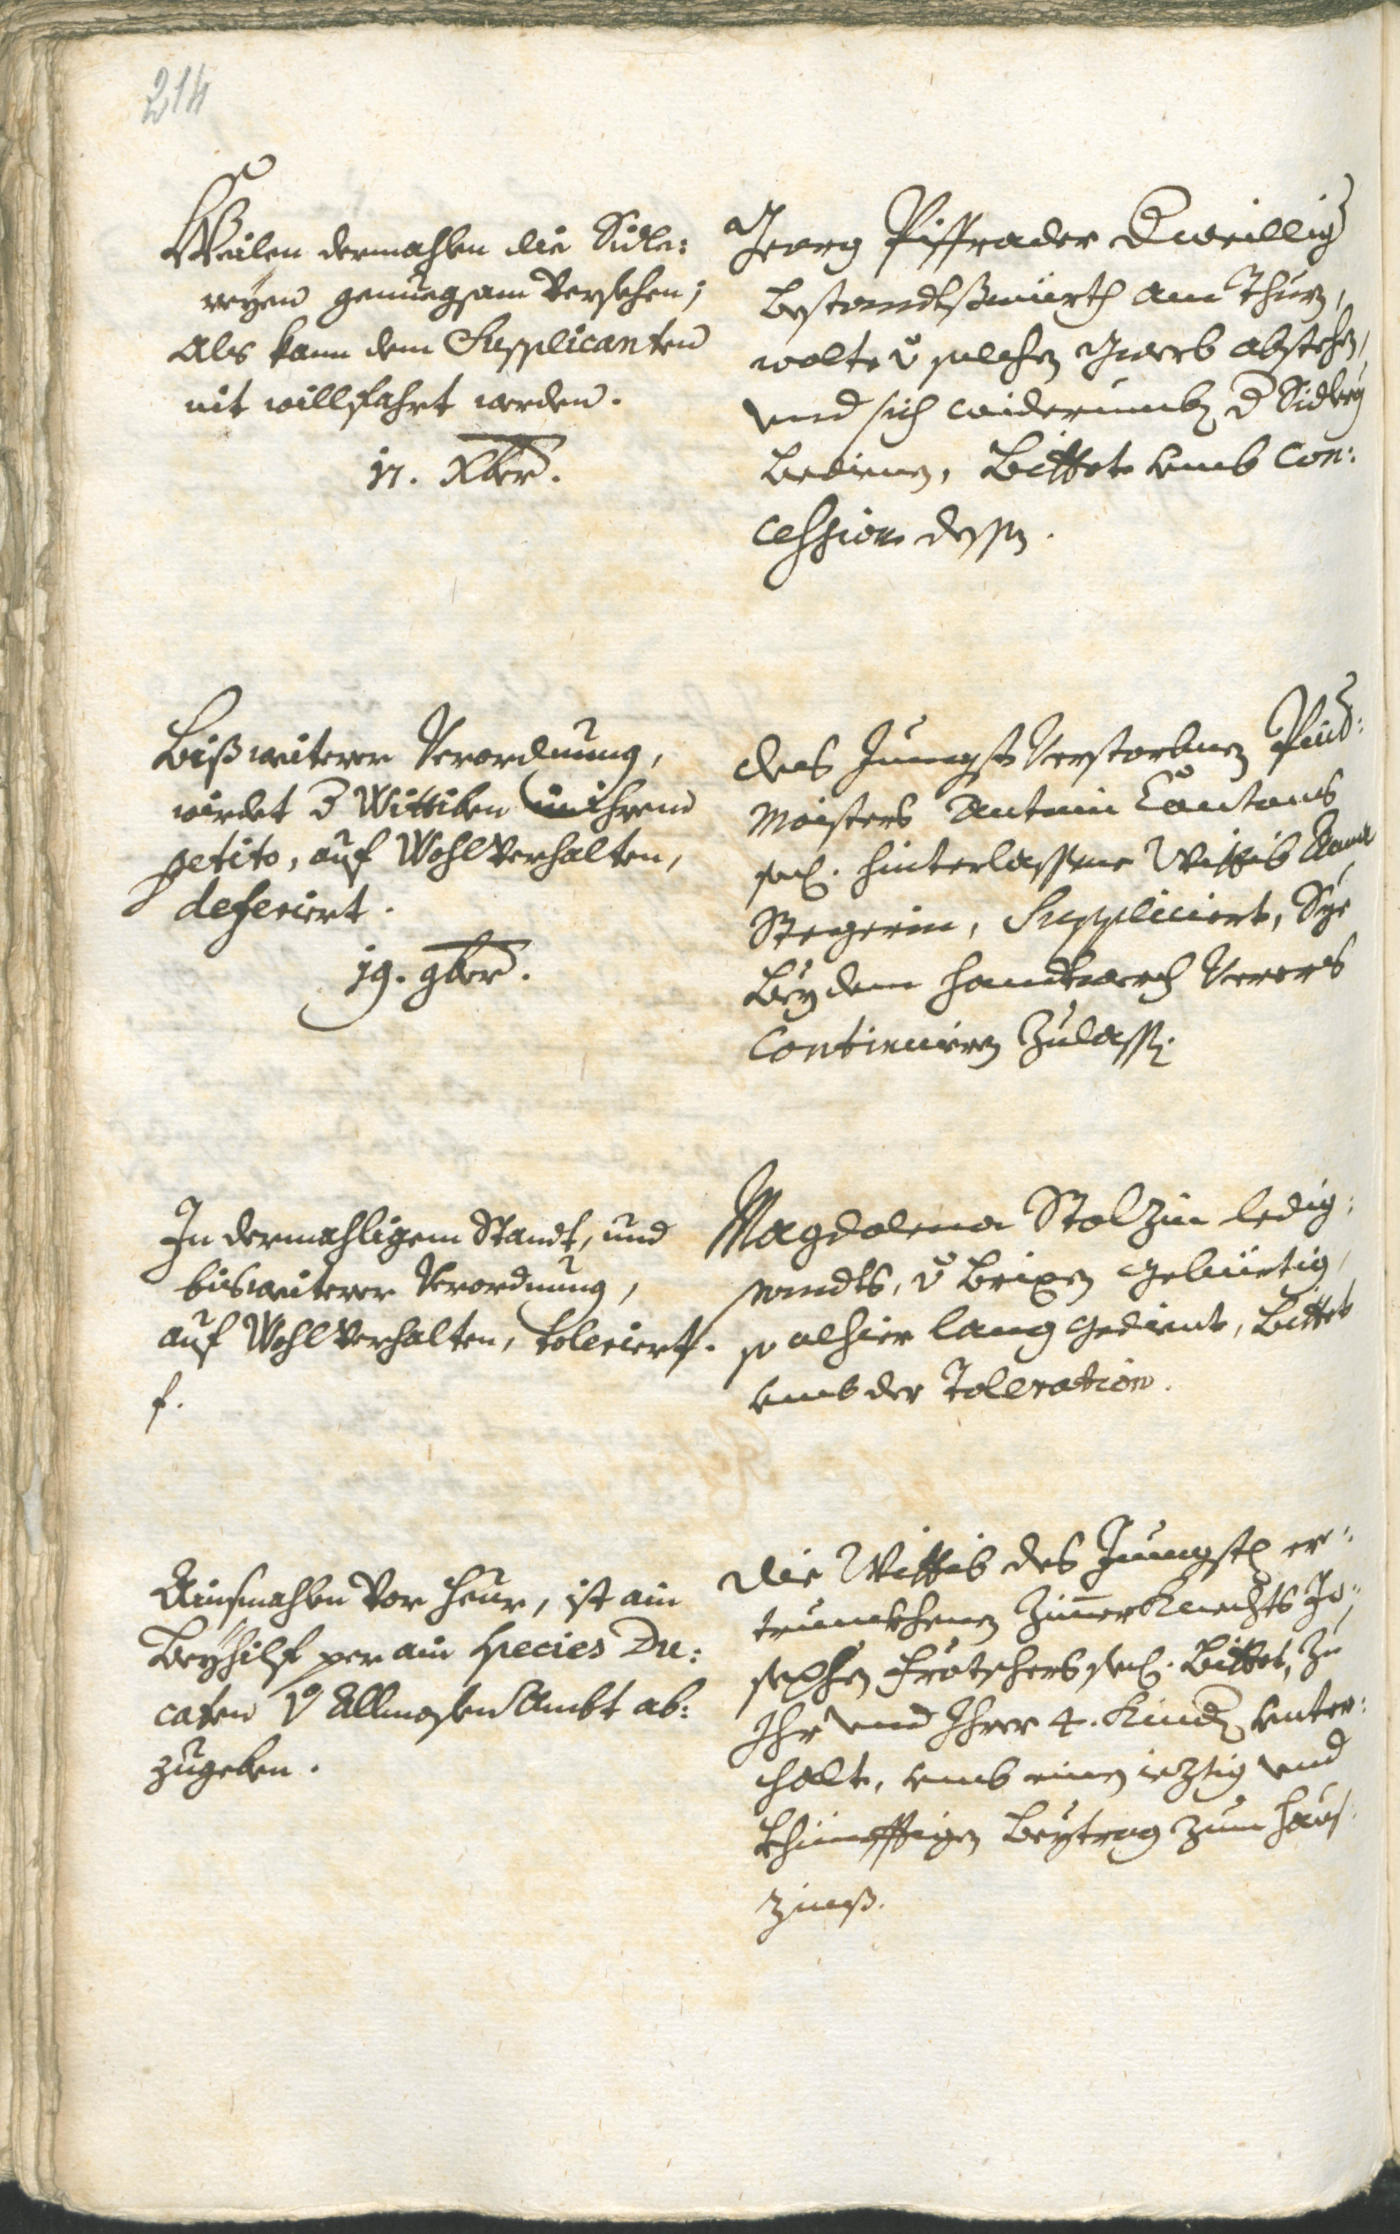 214
Weilen dermahlen die Sidle:
reyen genuegsam versehen;
Als kann dem Supplicanten
nit willfahrt werden.
17. Xber.
Georg Piffrader derweillig
Bestandtsswürth am Thurn,
wolte von solchen Gwerb abstehen,
und sich widerumb der Sidlerey
bedienen, Bittet umb Con:
cession dessen.
Biss weiterer Verordnung,
wirdet der Wittiben in ihrem
petito, auf Wohlverhalten,
deferiert.
19. 9ber.
des Jungst verstorbnen
Maisters Antoni Cantons
seel. hinterlassene Wittib Anna
Stegerin, Suppliciert, Sye
bey dem handtwerch
Continuiren zulassen.
In dermahligem Standt, und
bis weiterer Verordnung,
auf Wohlverhalten, toleriert.
f.
Magdalena Stolzin ledig:
standts, von Brixen gebürtig,
so alhier lang gedient, Bittet
umb der Toleration.
Ainsmahlen vor heur, ist ain
Beyhilf per ain species Du:
caten von Allmosen Ambt ab:
zugeben.
Die Wittib des Jungsth er:
trunckhenen Zimerknechts Jo:
sephen Frötschers seel. Bittet, zu
Ihr und Ihrer 4. Kinder unter:
halt, umb einen ieztig und
khünfftigen Beytrag zum Haus
zinss.